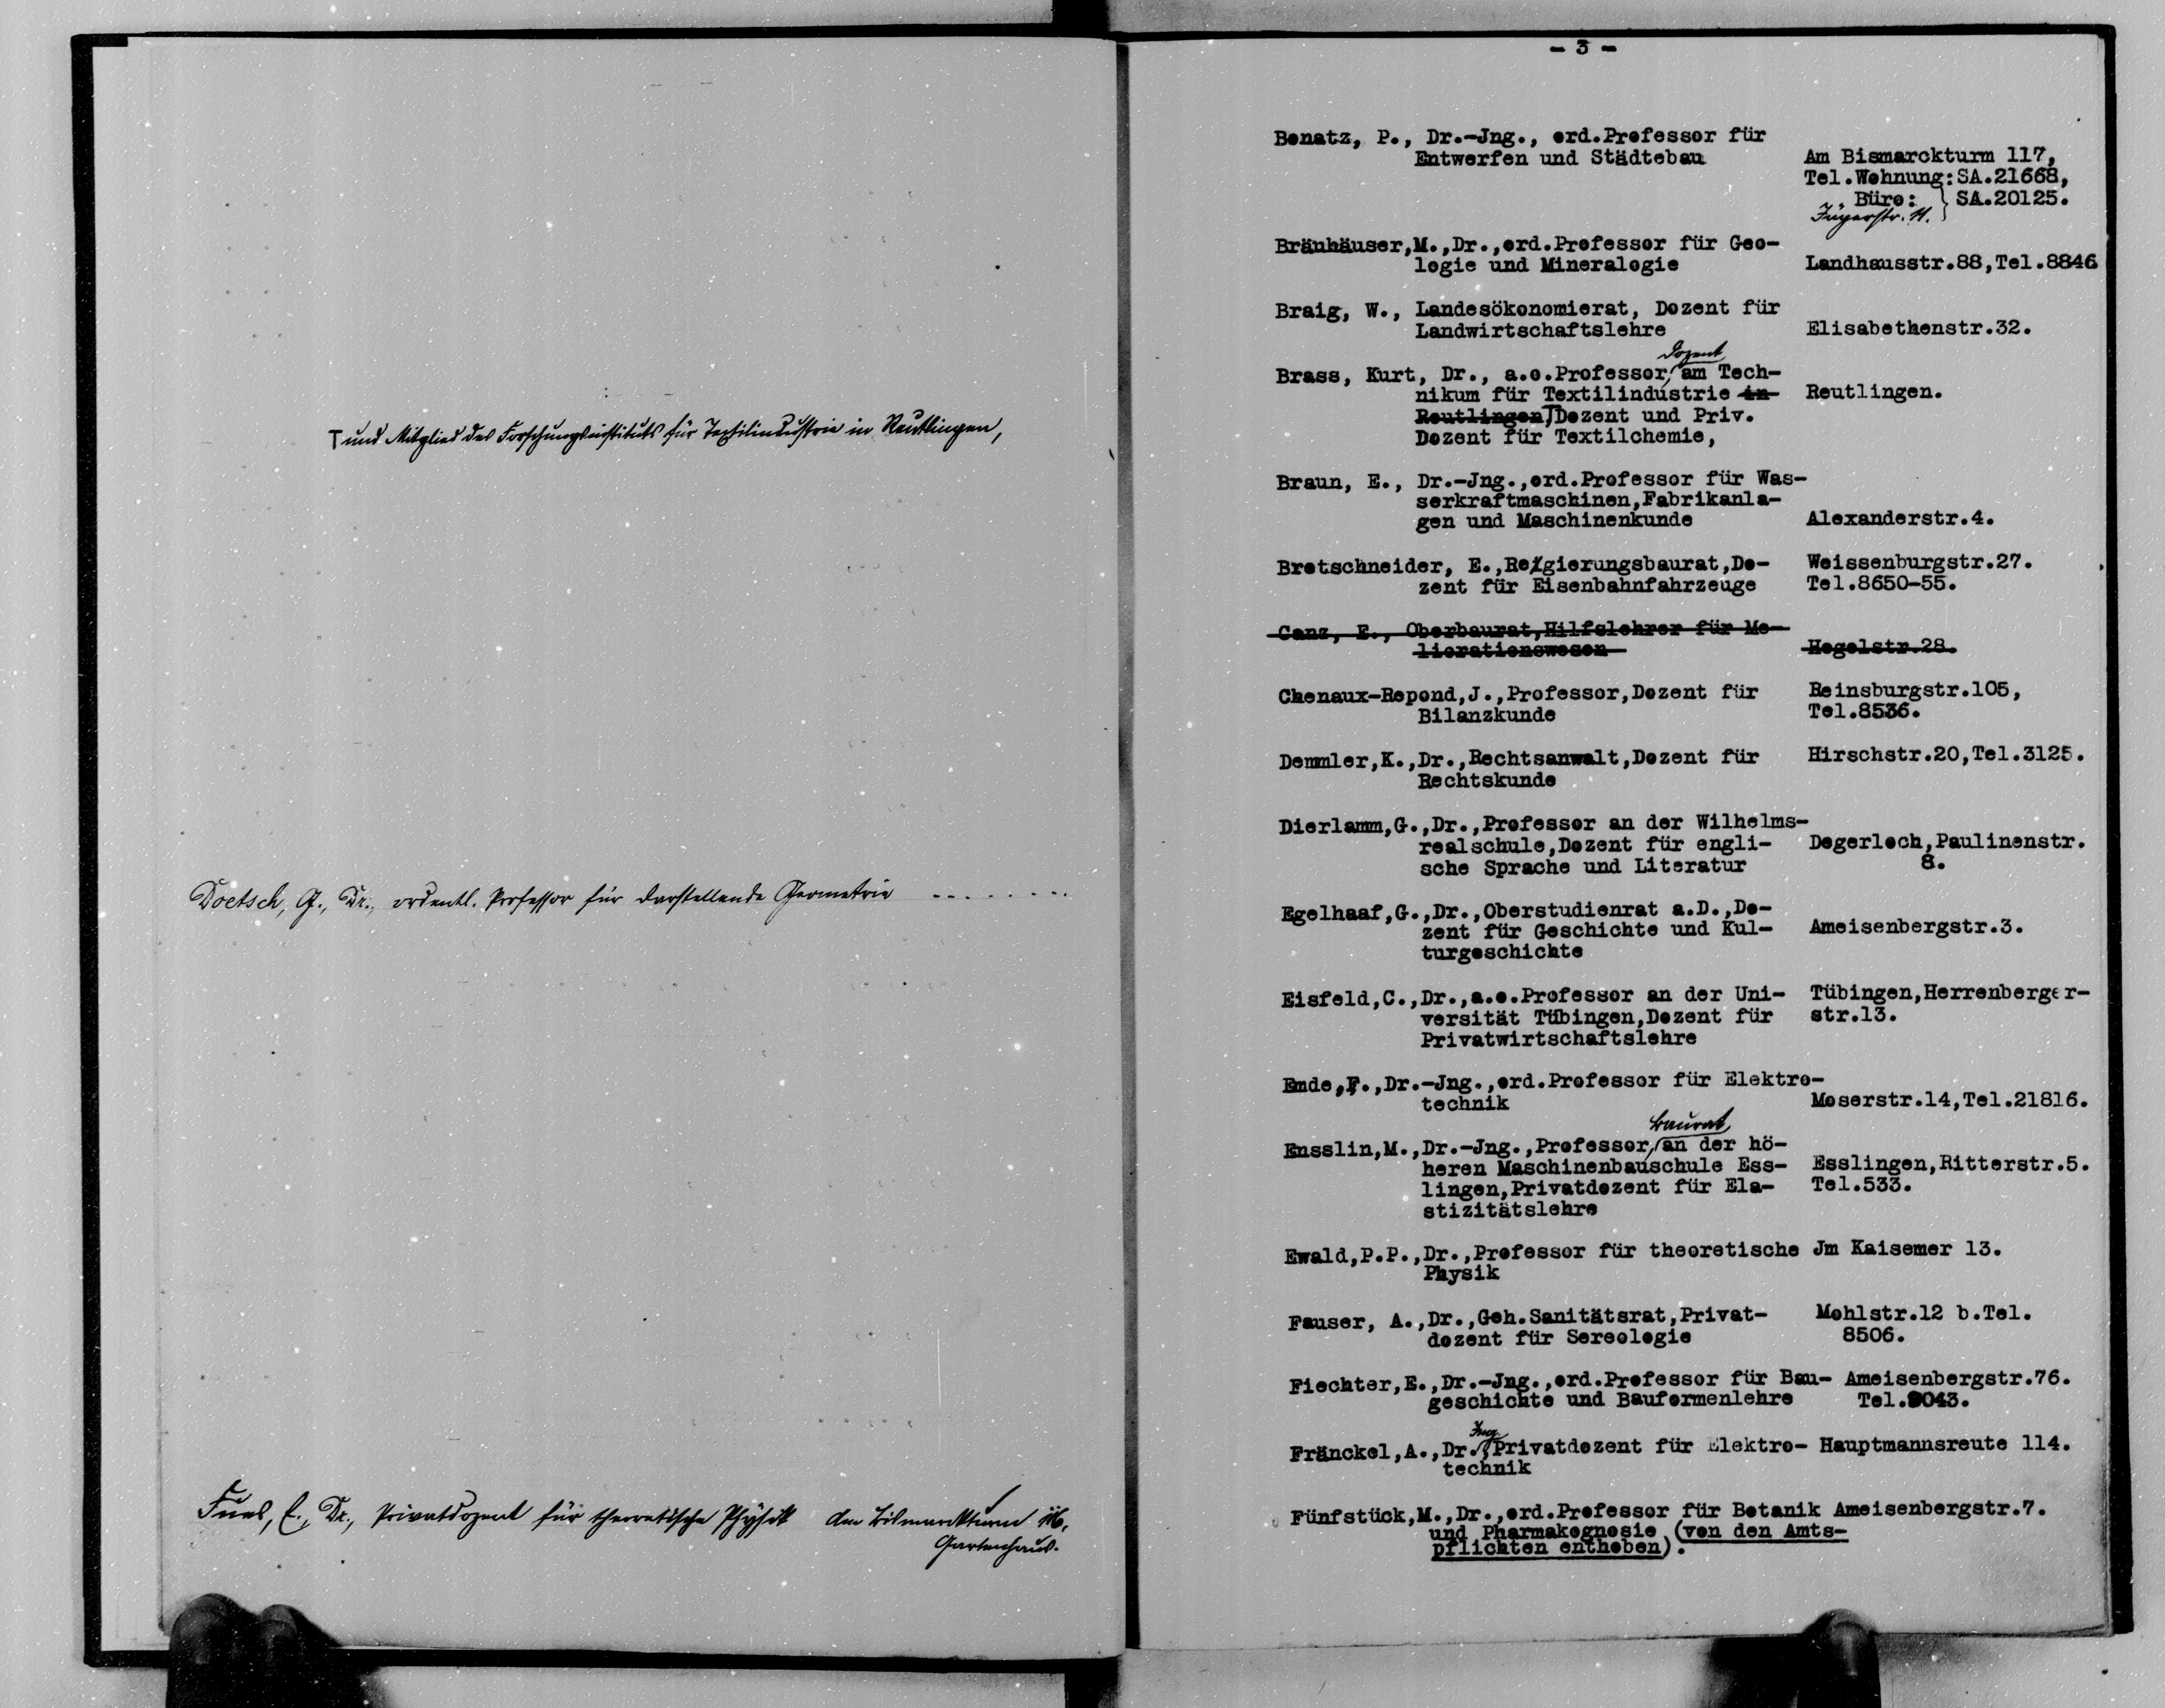 ⊤ und Mitglied des Forschungsinstituts für Textilindustrie in Reutlingen,
Doetsch, G., Dr., ordentl. Professor für darstellende Geometrie - - - - - - - -
Fues, E., Dr., Privatdozent für theoretische Physik Am Bismarckturm
Gartenhaus.
- 3 -
Bonatz, P., Dr.-Jng., ord.Professor für
Entwerfen und Städtebau Am Bismarckturm 117,
Tel.Wohnung:SA.21668,
Büro: } SA.20125.
Jägerstr. 11.
Bräuhäuser,M.,Dr.,ord.Professor für Geo-
logie und Mineralogie Landhausstr.88,Tel.8846
Braig, W., Landesökonomierat, Dozent für
Landwirtschaftslehre Elisabethenstr.32.
Dozent
Brass, Kurt, Dr., a.o.Professor, am Tech-
nikum für Textilindustrie in Reutlingen.
Reutlingen,⊤Dozent und Priv.
Dozent für Textilchemie,
Braun, E., Dr.-Jng.,ord.Professor für Was-
serkraftmaschinen,Fabrikanla-
gen und Maschinenkunde Alexanderstr.4.
Bretschneider, E.,Regierungsbaurat,Do- Weissenburgstr.27.
zent für Eisenbahnfahrzeuge Tel.8650-55.
Canz, E., Oberbaurat,Hilfslehrer für Me-
liorationswesen Hegelstr.28.
Chenaux-Repond,J.,Professor,Dozent für Reinsburgstr.105,
Bilanzkunde Tel.8536.
Demmler,K.,Dr.,Rechtsanwalt,Dozent für Hirschstr.20,Tel.3125.
Rechtskunde
Dierlamm,G.,Dr.,Professor an der Wilhelms-
realschule,Dozent für engli- Degerloch,Paulinenstr.
sche Sprache und Literatur 8.
Egelhaaf,G.,Dr.,Oberstudienrat a.D.,Do-
zent für Geschichte und Kul- Ameisenbergstr.3.
turgeschichte
Eisfeld,C.,Dr.,a.o.Professor an der Uni- Tübingen,Herrenberger-
versität Tübingen,Dozent für str.13.
Privatwirtschaftslehre
Emde,F.,Dr.-Jng.,ord.Professor für Elektro-
technik Moserstr.14,Tel.21816.
Baurat
Ensslin,M.,Dr.-Jng.,Professor, an der hö-
heren Maschinenbauschule Ess- Esslingen,Ritterstr.5.
lingen,Privatdozent für Ela- Tel.533.
stizitätslehre
Ewald,P.P.,Dr.,Professor für theoretische Jm Kaisemer 13.
Physik
Fauser, A.,Dr.,Geh.Sanitätsrat,Privat- Mohlstr.12 b.Tel.
dozent für Sereologie 8506.
Fiechter,E.,Dr.-Jng.,ord.Professor für Bau- Ameisenbergstr.76.
geschichte und Bauformenlehre Tel.9043.
Ing.
Fränckel,A.,Dr.,Privatdozent für Elektro- Hauptmannsreute 114.
technik
Fünfstück,M.,Dr.,ord.Professor für Botanik Ameisenbergstr.7.
und Pharmakognosie (von den Amts-
pflichten enthoben).